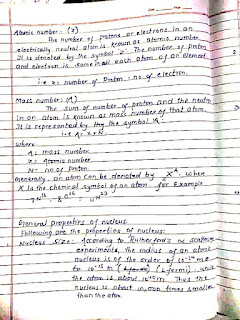 Atomic number: (Z)
The number of protons or electrons in an
electrically neutral atom is known as atomic number.
It is denoted by the symbol 'z'. The number of proton
and electron is same in all each atom of an element.
i.e z = number of Proton = no: of electron.
Mass number: (A)
The sum of number of proton and the neutron
in an atom is known as mass number of that atom.
It is represented by the symbol 'A'.
i.e A = z+N
where
A: mass number
z: Atomic number
N: no of Proton
Generally, an atom can be denoted by zXA. where
X is the chemical symbol of an atom. for Example
General properties of nucleus
Following are the properties of nucleus:
Nucleus Size: According to Rutherford's α scattering
experiments, the radius of an atomic
nucleus is of the order of 10⁻¹⁴ m
to 10⁻¹⁵ m (1 fermi). while
the atom is about 10⁻¹⁰ m. Thus the
nucleus is about 10,000 times smaller
than the atom.